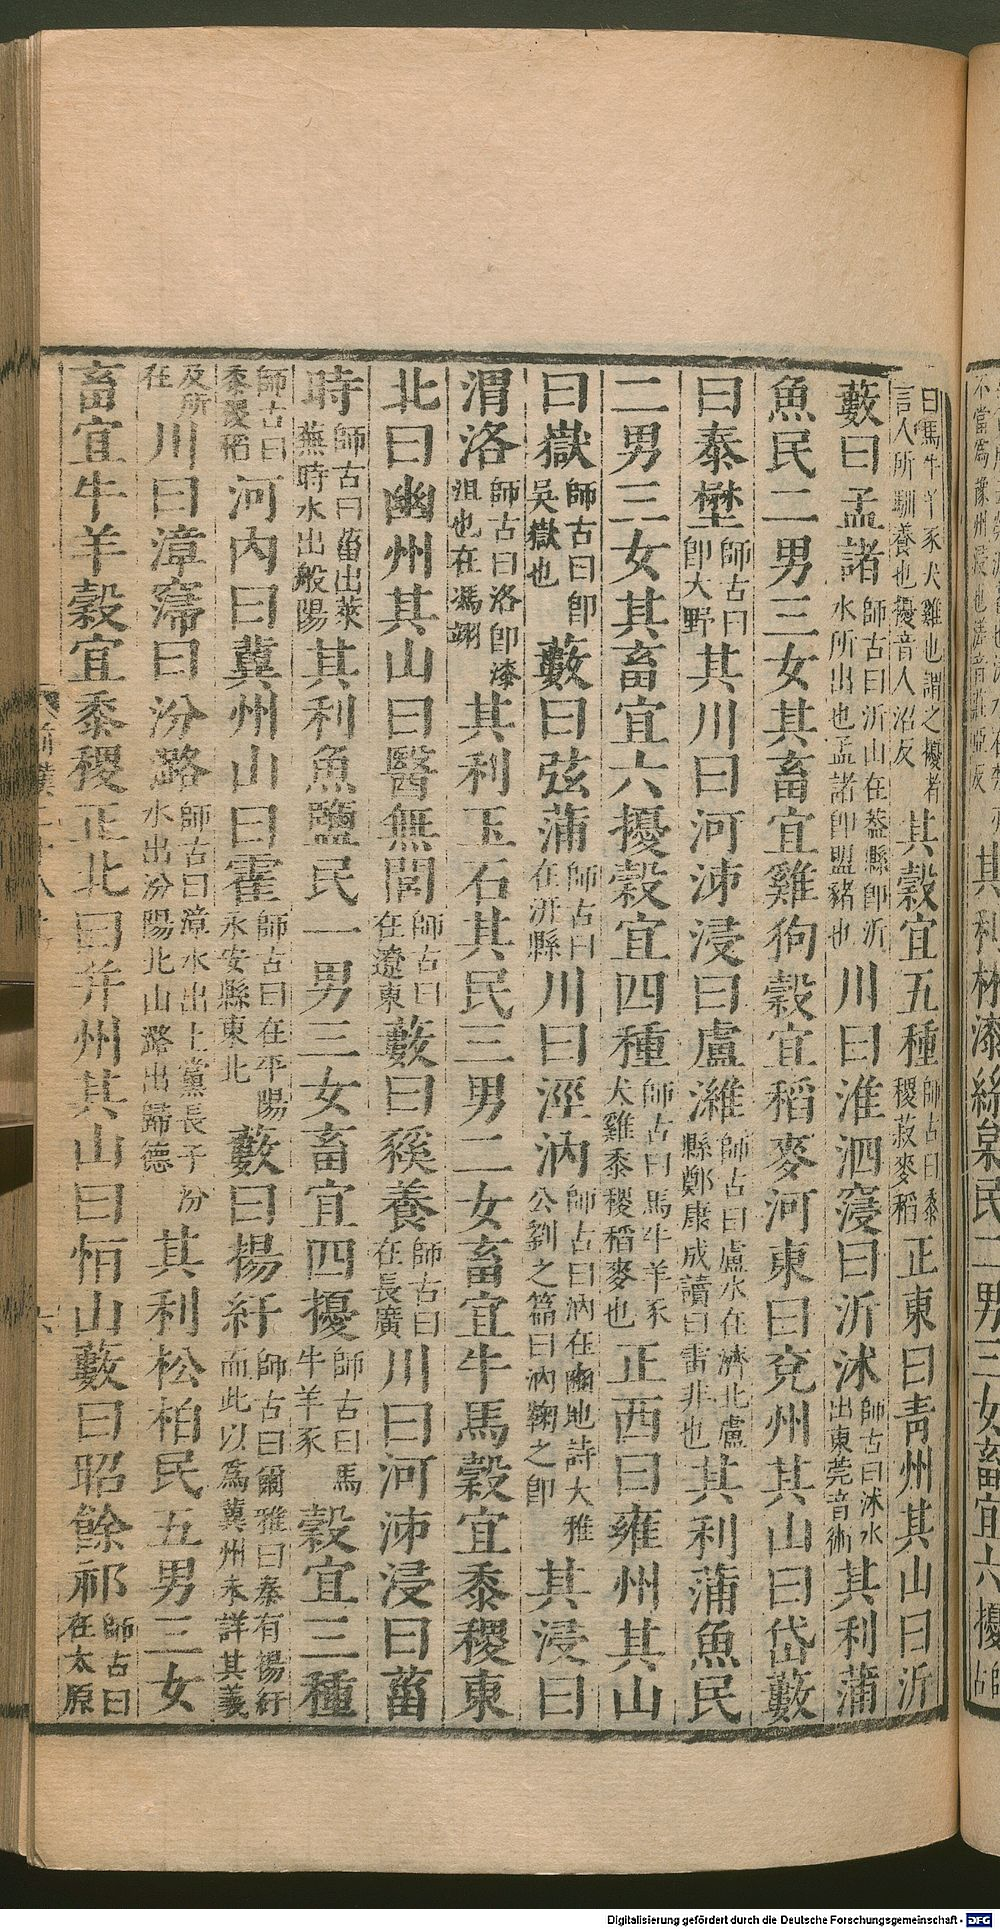 曰馬牛羊豕犬雞也謂之擾者言人所馴養也擾音人沼反其穀宜五種師古曰黍稷菽麥稻正東曰青州其山曰沂
藪曰孟諸師古曰沂山在葢縣卽沂水所出也孟諸卽盟豬也川曰淮泗寖曰沂沭師古曰沭水出東莞音術其利蒲
魚民二男三女其畜宜雞狗穀宜稻麥河東曰兗州其山曰岱藪
曰泰壄師古曰卽大野其川曰河泲浸曰盧濰師古曰盧水在濟北盧縣鄭康成讀曰雷非也其利蒲魚民
二男三女其畜宜六擾穀宜四種師古曰馬牛羊豕犬雞黍稷稻麥也正西曰雍州其山
曰嶽師古曰卽吳嶽也藪曰弦蒲師古曰在汧縣川曰涇汭師古曰汭在豳地詩大雅公劉之篇曰汭鞠之卽其浸曰
渭洛師古曰洛卽漆沮也在馮翊其利玉石其民三男二女畜宜牛馬穀宜黍稷東
北曰幽州其山曰醫無閭師古曰在遼東藪曰豯養師古曰在長廣川曰河泲浸曰菑
時師古曰菑出萊蕪時水出般陽其利魚鹽民一男三女畜宜四擾師古曰馬牛羊豕穀宜三種
師古曰黍稷稻河內曰冀州山曰霍師古曰在平陽永安縣東北藪曰揚紆師古曰爾雅曰秦有揚紆而此以爲冀州未詳其義
及所在川曰漳寖曰汾潞師古曰漳水出上黨長子汾水出汾陽北山潞出歸德其利松柏民五男三女
畜宜牛羊穀宜黍稷正北曰幷州其山曰恆山藪曰昭餘祁師古曰在太原
六
其利林漆絲枲民二男三女畜宜六擾師古
Digitalisierung gefördert durch die Deutsche Forschungsgemeinschaft - DFG